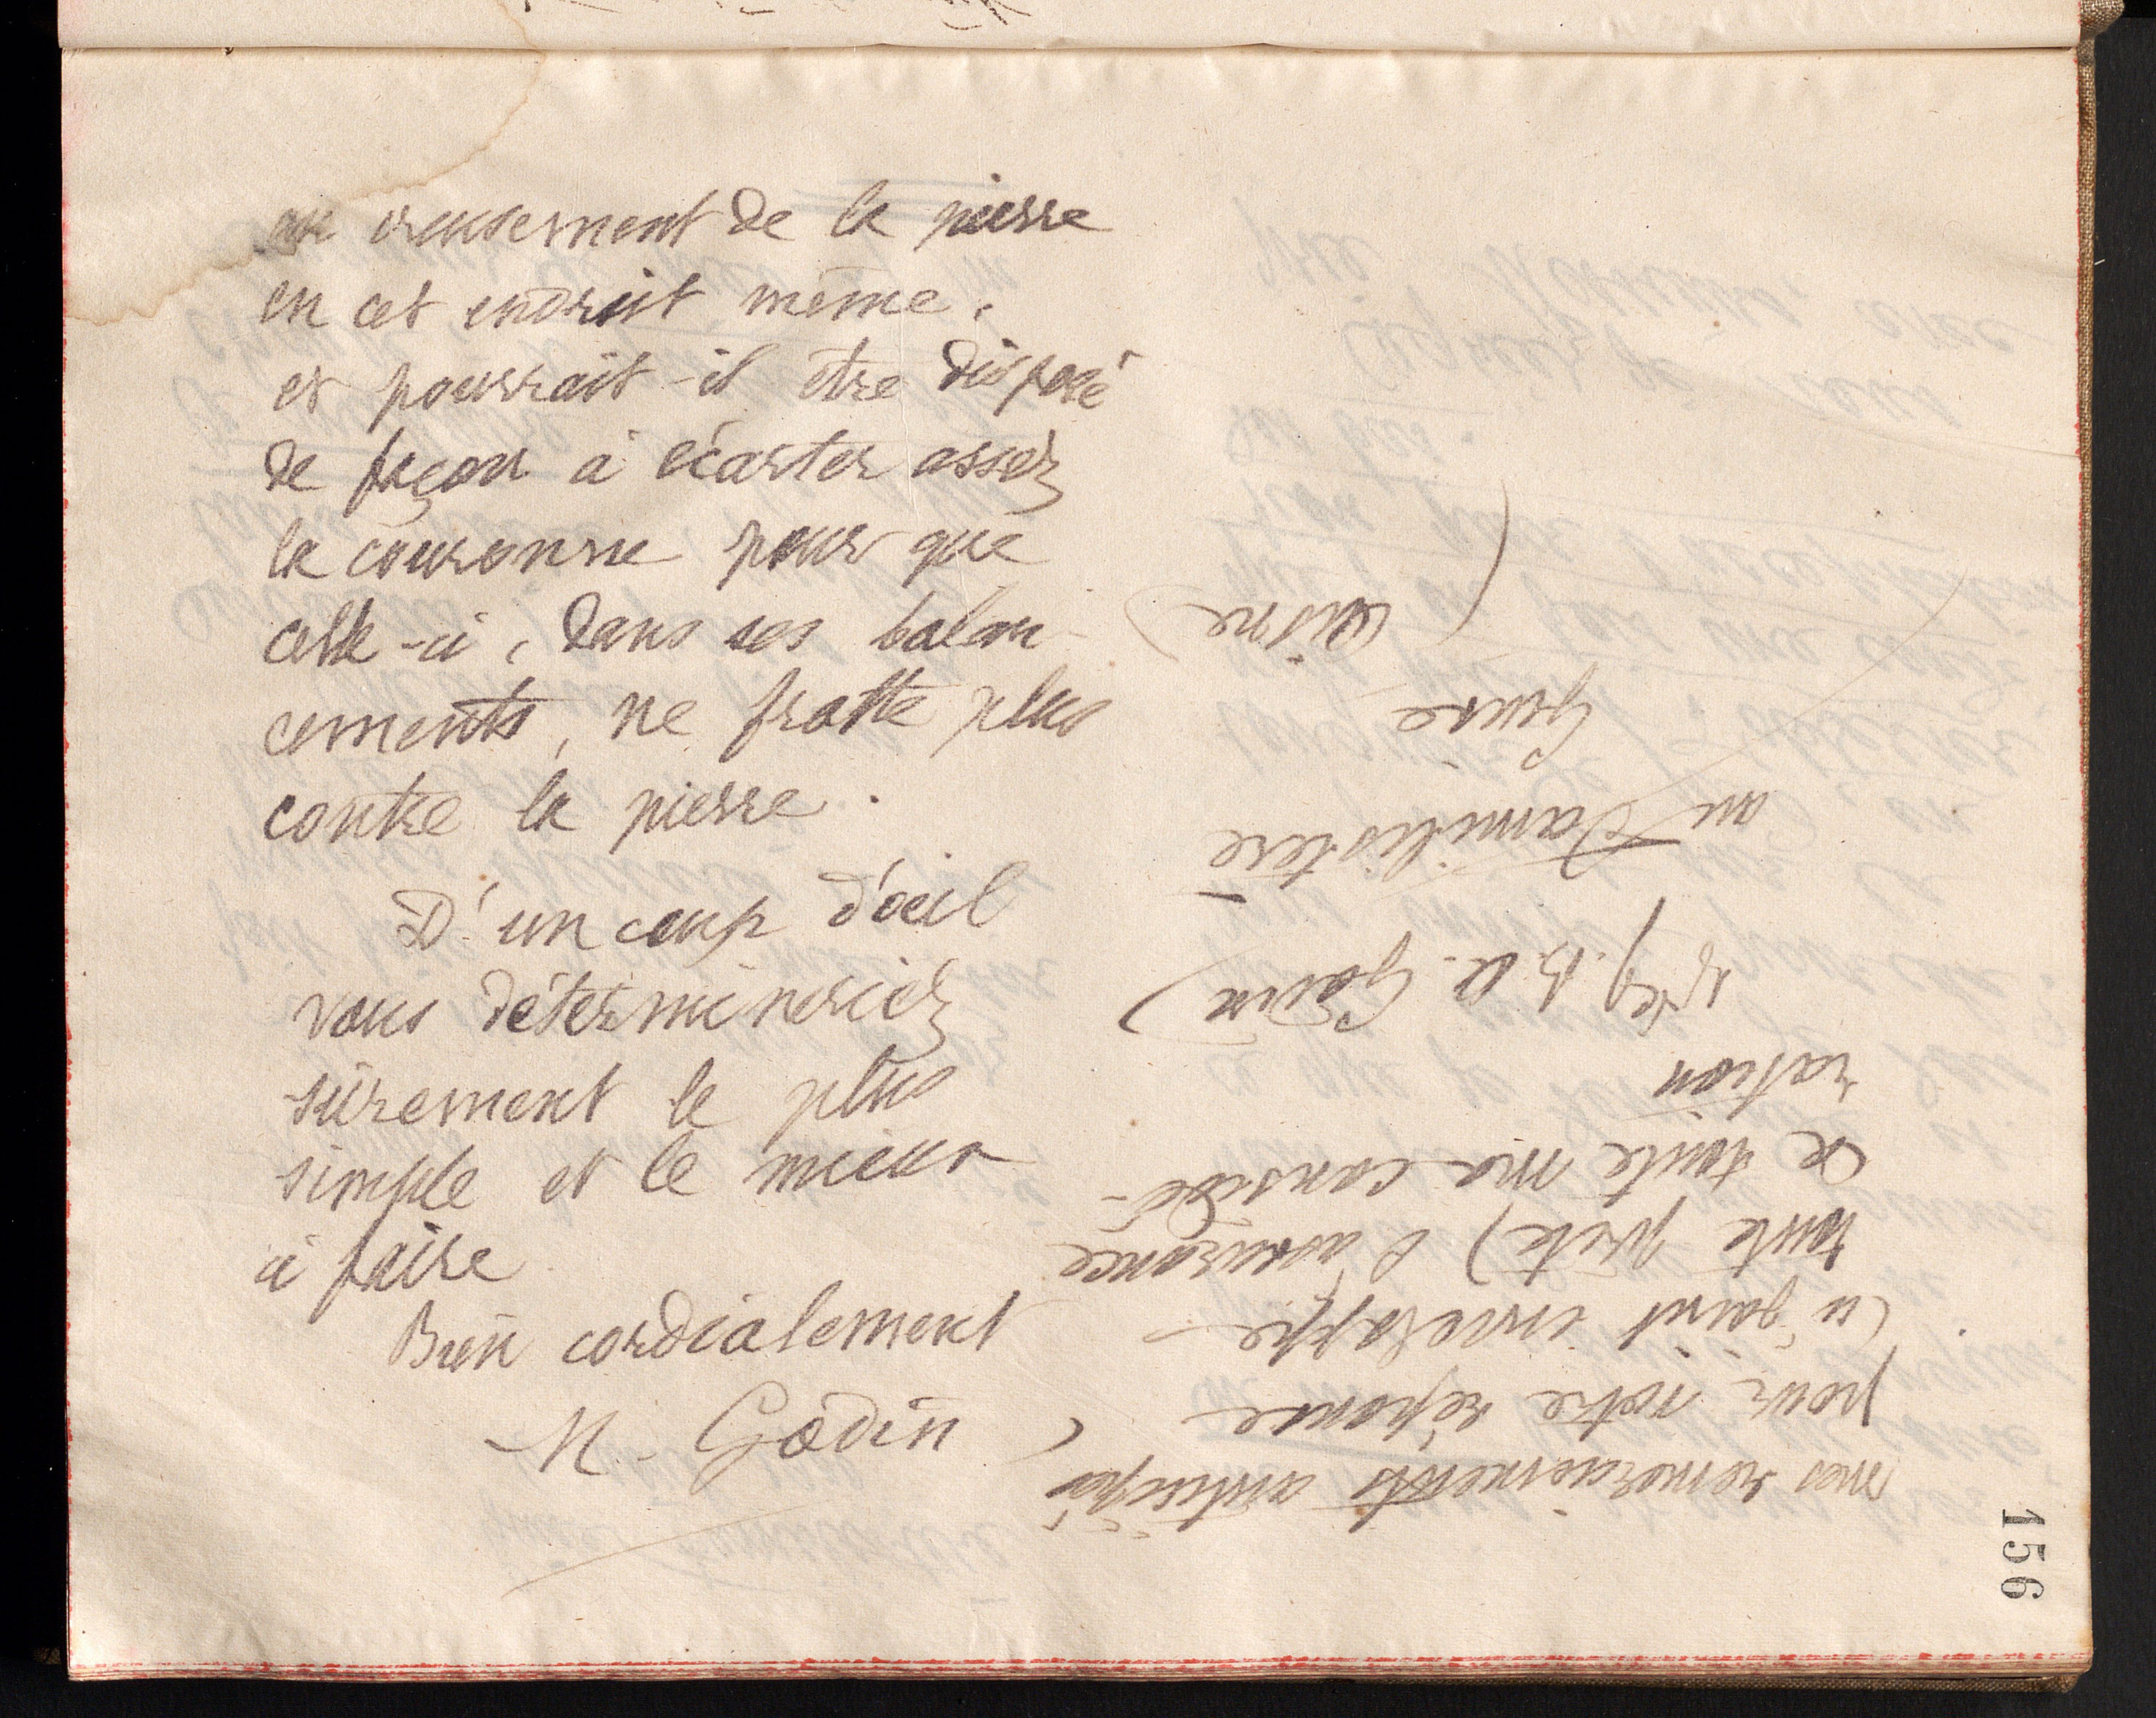 au creusement de la pierre
en cet endroit même,
et pourrait-il être disposé
de façon à écarter assez
la couronne pour que
celle-ci, dans ses balan-
cements, ne frotte plus
contre la pierre.
D'un coup d'oeil
vous détermineriez
sûrement le plus
simple et le mieux
à faire
Bien cordialement
M. Godin
mes remerciements anticipés
pour votre réponse
(ci-joint enveloppe
toute prête) l'assurance
de toute ma considé-
ration
J. B. A. Godin
au Familistère
Guise
(Aisne)
156